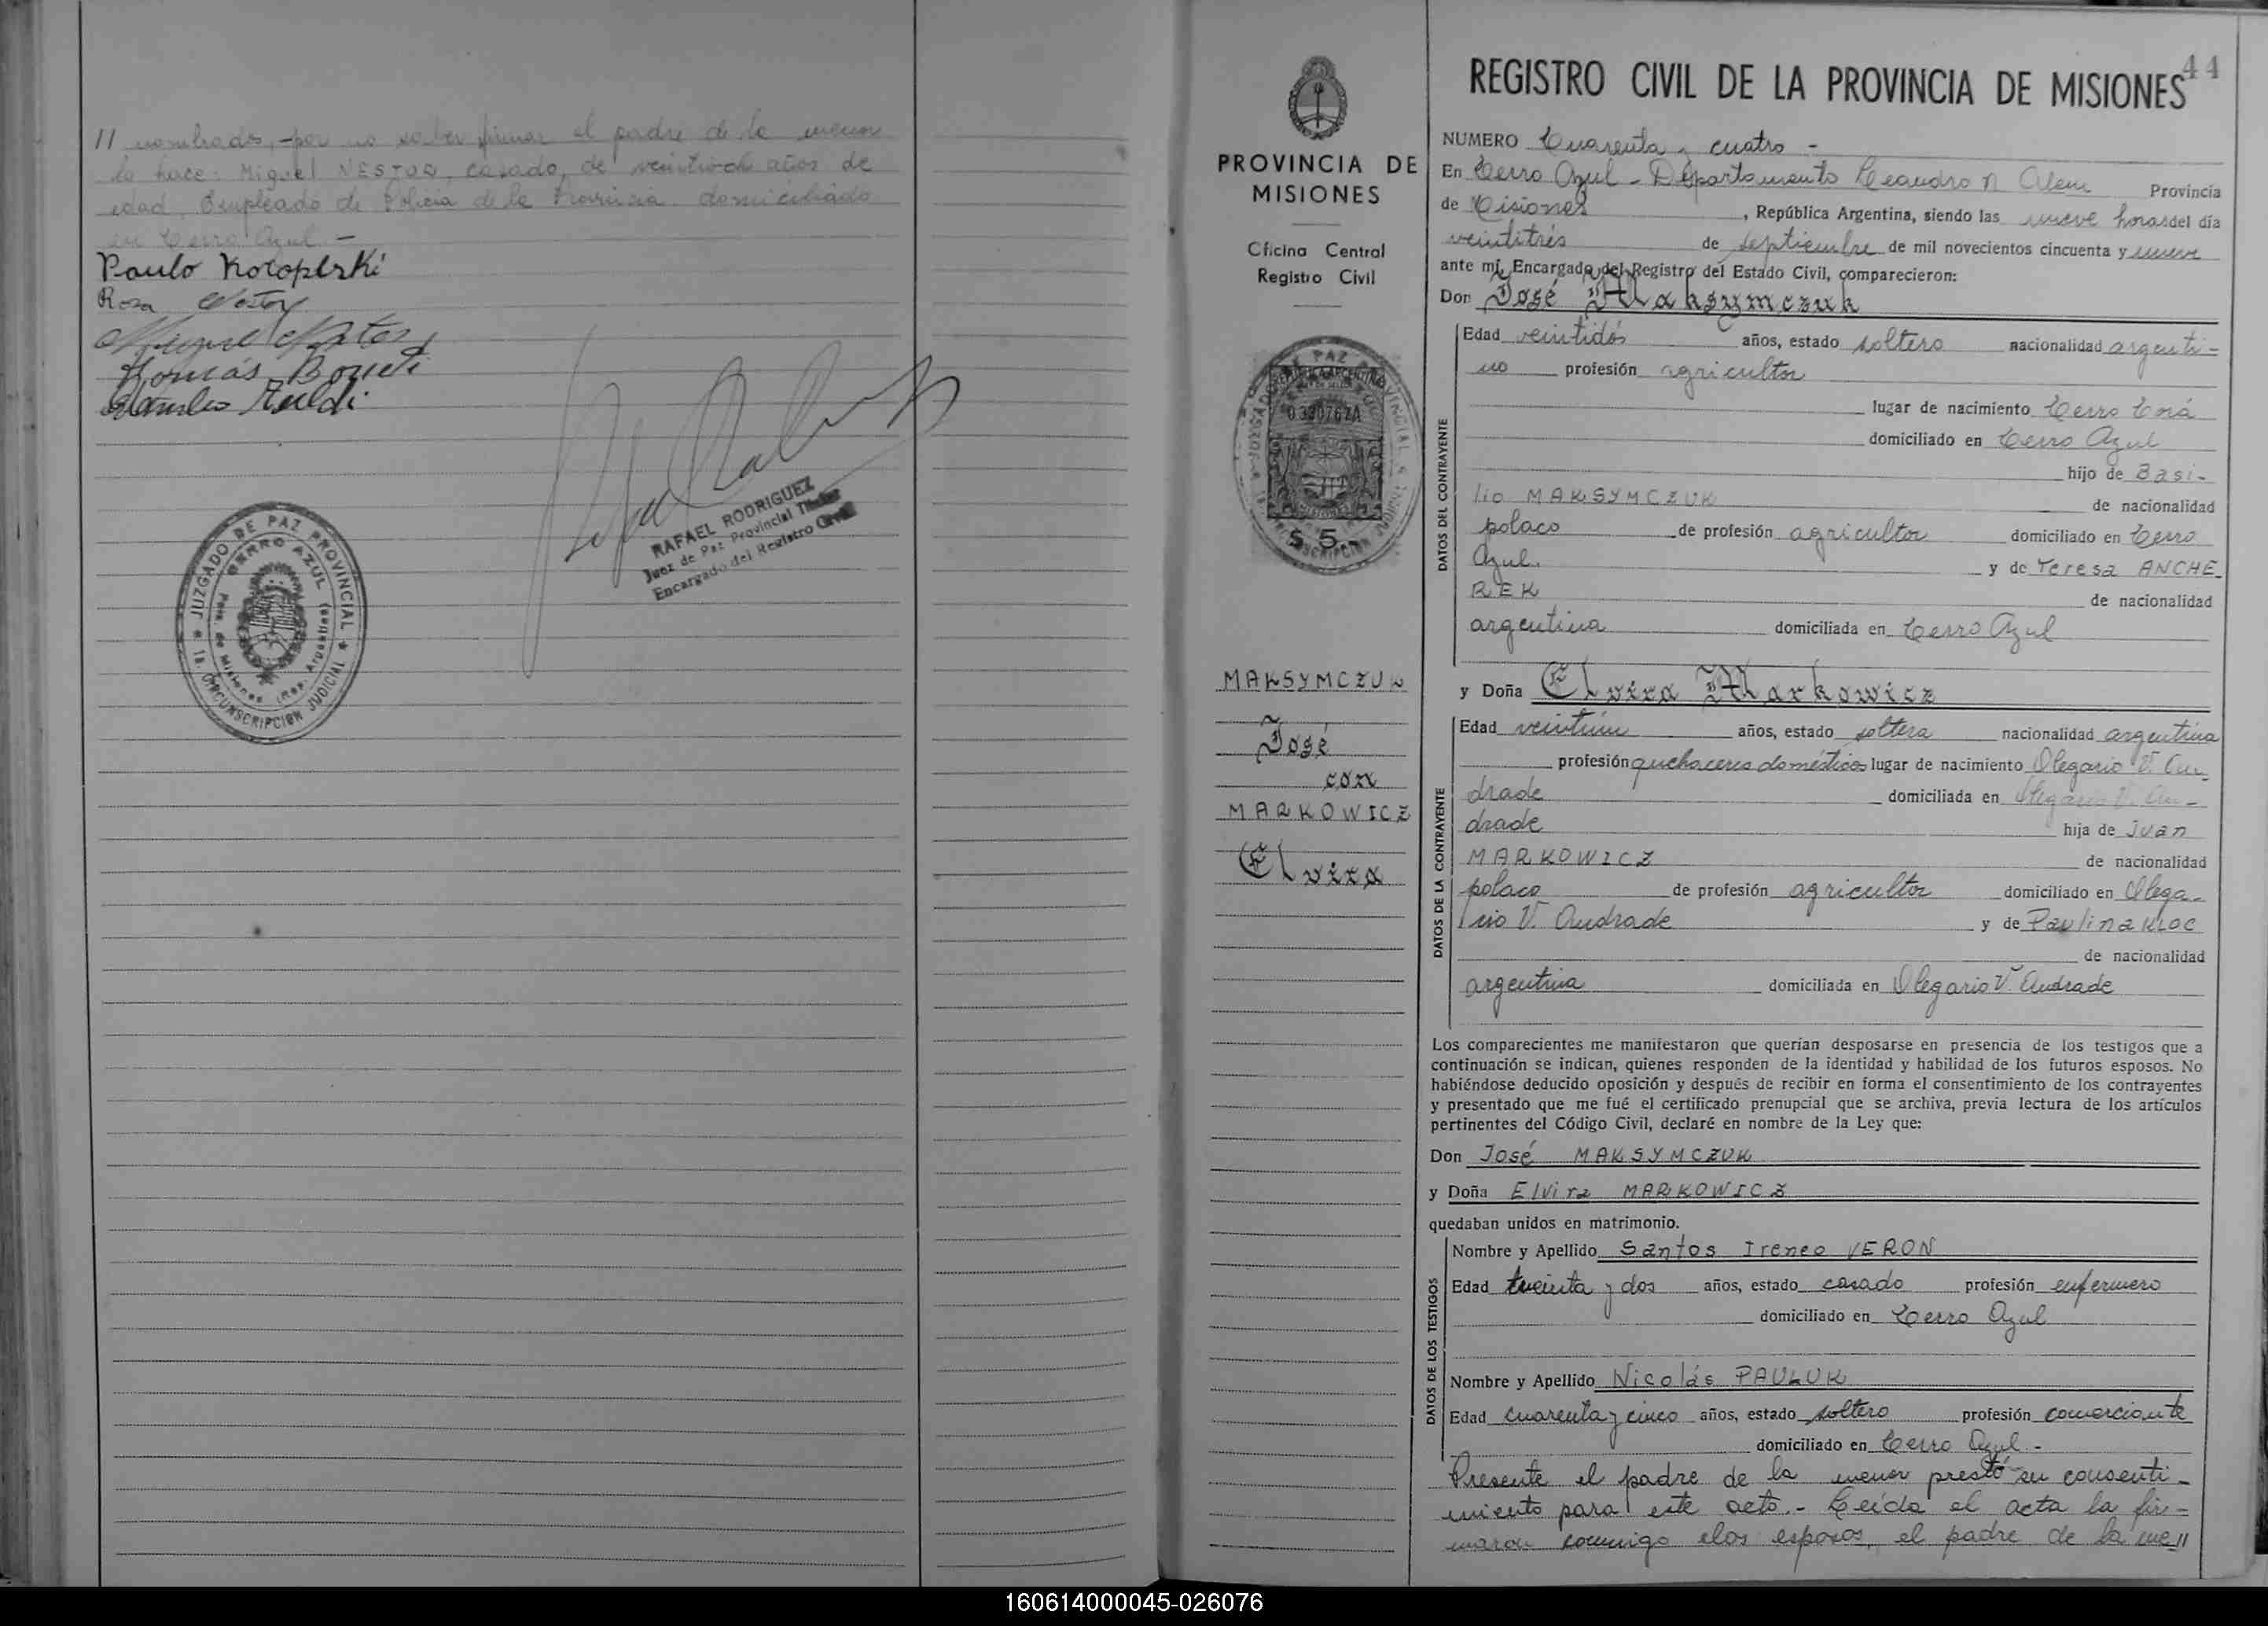 // nombrados, -por no saber firmar el padre de la menor
lo hace: Miguel NESTOR, casado, de veintiocho años de
edad, Empleado de Policia de la Provincia domiciliado
en Cerro Azul. -
Paulo
Rosa Nestor
Miguel Nestor
Tomás
RAFAEL RODRIGUEZ
Juez de Paz Provincial Titular
Encargado del Registro Civil
JUZGADO DE PAZ PROVINCIAL
CERRO AZUL
Pcia. de Misiones (Rep. Argentina)
1a. CIRCUNSCRIPCION JUDICIAL
PROVINCIA DE
MISIONES
Oficina Central
Registro Civil
REPUBLICA ARGENTINA
MISIONES
$ 5.-
MAKSYMCZUK
José
con
MARKOWICZ
Elvira
44
REGISTRO CIVIL DE LA PROVINCIA DE MISIONES
NUMERO Cuarenta y cuatro -
En Cerro Azul - Departamento Leandro N Alem Provincia
de Misiones, República Argentina, siendo las nueve horas del día
veintitrés de septiembre de mil novecientos cincuenta y nueve
ante mí, Encargado del Registro del Estado Civil, comparecieron:
Don José Maksymczuk
DATOS DEL CONTRAYENTE
Edad veintidós años, estado soltero nacionalidad argenti-
no profesión agricultor
lugar de nacimiento Cerro Corá
domiciliado en Cerro Azul
hijo de Basi-
lio MAKSYMCZUK de nacionalidad
polaco de profesión agricultor domiciliado en Cerro
Azul. y de Teresa ANCHE-
REK de nacionalidad
argentina domiciliada en Cerro Azul
y Doña Elvira Markowicz
DATOS DE LA CONTRAYENTE
Edad veintiún años, estado soltera nacionalidad argentina
profesión quehaceres domésticos lugar de nacimiento Olegario V. An-
drade domiciliada en Olegario V. An-
drade hija de Juan
MARKOWICZ de nacionalidad
polaco de profesión agricultor domiciliado en Olega-
rio V. Andrade y de Paulina KLOC
de nacionalidad
argentina domiciliada en Olegario V. Andrade
Los comparecientes me manifestaron que querían desposarse en presencia de los testigos que a
continuación se indican, quienes responden de la identidad y habilidad de los futuros esposos. No
habiéndose deducido oposición y después de recibir en forma el consentimiento de los contrayentes
y presentado que me fué el certificado prenupcial que se archiva, previa lectura de los artículos
pertinentes del Código Civil, declaré en nombre de la Ley que:
Don José MAKSYMCZUK
y Doña Elvira MARKOWICZ
quedaban unidos en matrimonio.
DATOS DE LOS TESTIGOS
Nombre y Apellido Santos Ireneo VERON
Edad treinta y dos años, estado casado profesión enfermero
domiciliado en Cerro Azul
Nombre y Apellido Nicolás PAULUK
Edad cuarenta y cinco años, estado soltero profesión comerciante
domiciliado en Cerro Azul -
Presente el padre de la menor prestó su consenti-
miento para este acto. - Leída el acta la fir-
maron conmigo los esposos, el padre de la me//
160614000045-026076